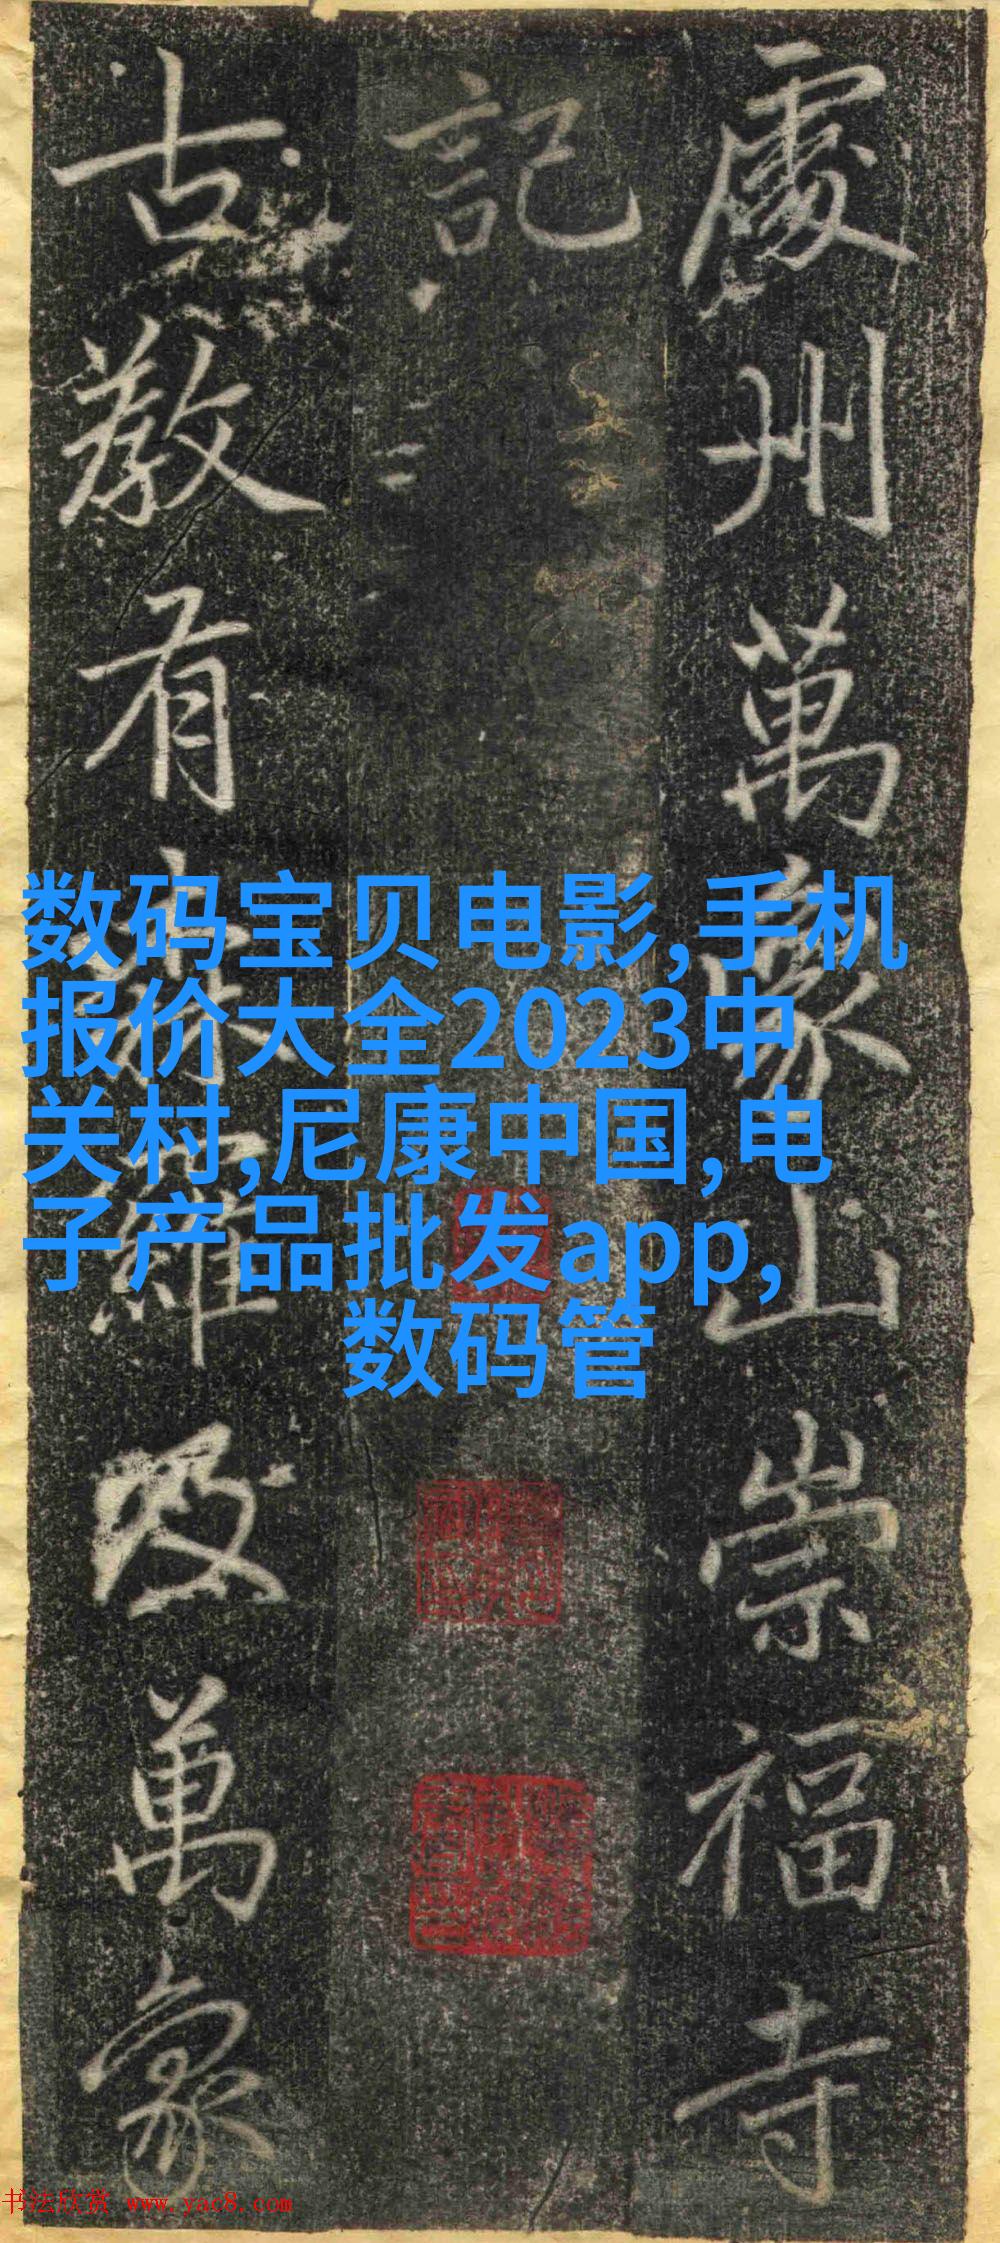 處州萬象山崇福寺
記
古敎有森羅及萬象
数码宝贝电影,手机
报价大全2023中
关村,尼康中国,电
子产品批发app,
数码管
书法欣赏 www.yac8.com